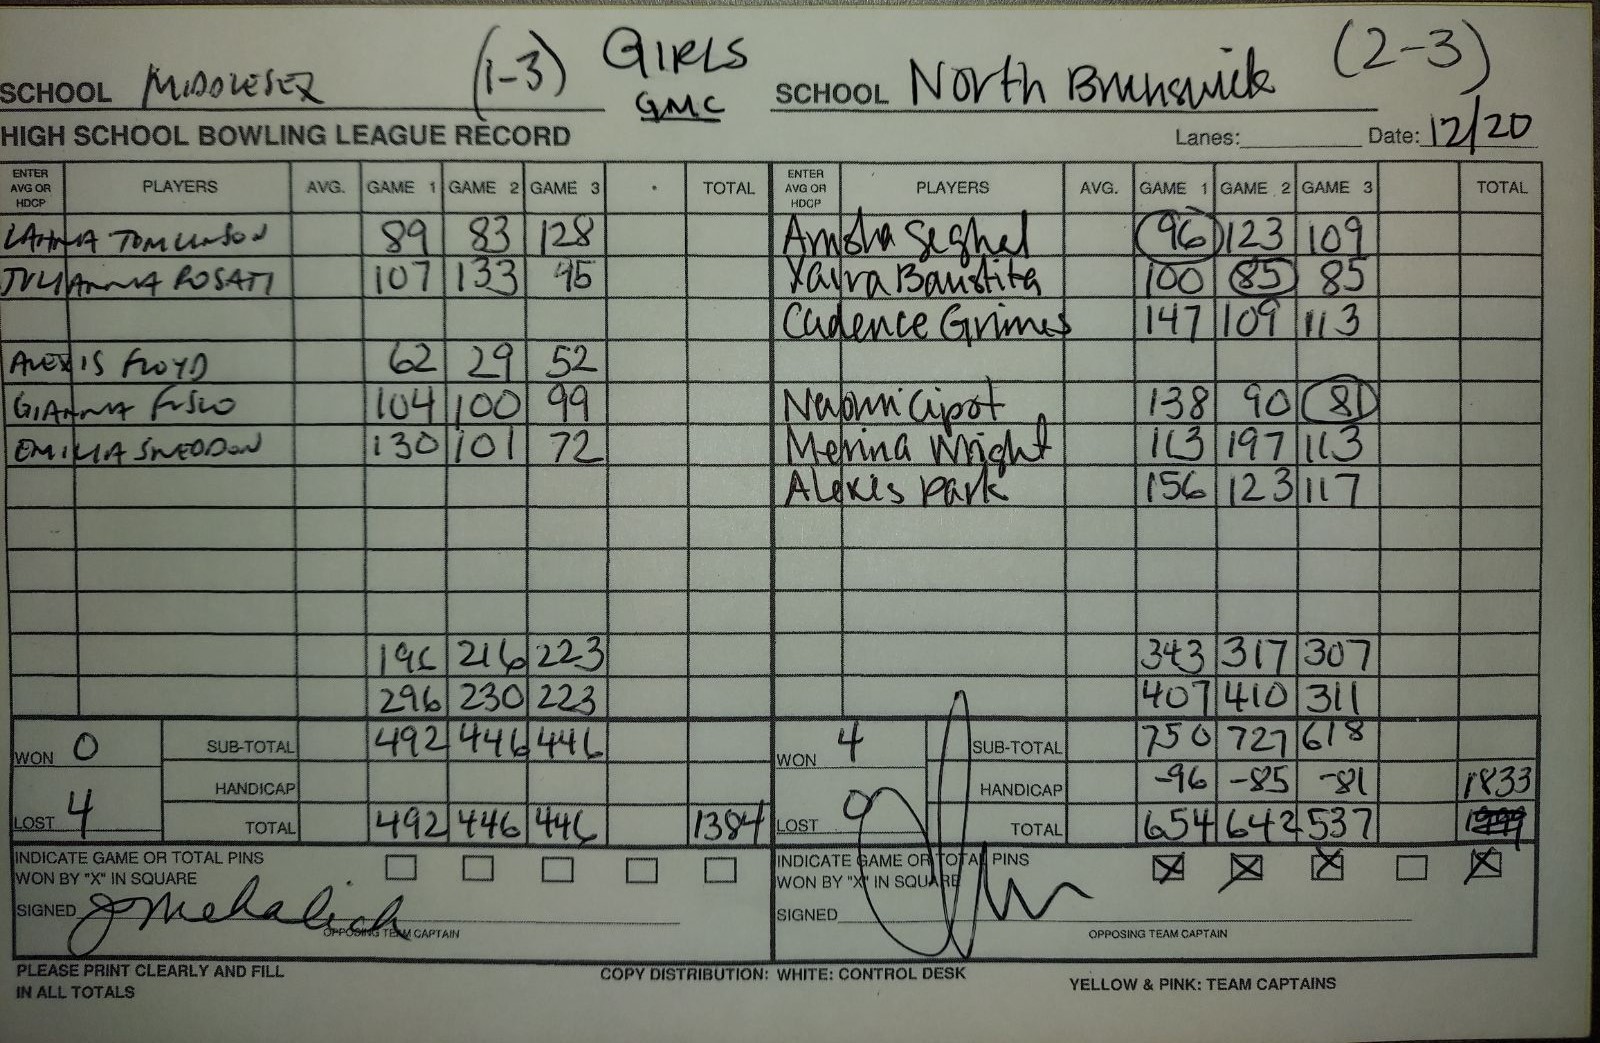 SCHOOL MIDDLESEX (1-3) GIRLS GMC SCHOOL North Brunswick (2-3)
HIGH SCHOOL BOWLING LEAGUE RECORD Lanes: Date: 12/20
ENTER AVG OR HDCP PLAYERS AVG. GAME 1 GAME 2 GAME 3 TOTAL ENTER AVG OR HDCP PLAYERS AVG. GAME 1 GAME 2 GAME 3 TOTAL
TOMLINSON 89 83 128 Seghal 96 123 109
JULIANNA ROSATI 107 133 95 Baustita 100 85 85
Cadence Grimes 147 109 113
ALEXIS FLOYD 62 29 52
GIANNA 104 100 99 Naomi Cipot 138 90 81
EMILIA SNEDDON 130 101 72 Merina Wright 113 197 113
Alexis Park 156 123 117
196 216 223 343 317 307
296 230 223 407 410 311
WON 0 SUB-TOTAL 492 446 446 WON 4 SUB-TOTAL 750 727 618
HANDICAP HANDICAP -96 -85 -81 1833
LOST 4 TOTAL 492 446 446 1384 LOST 0 TOTAL 654 642 537
INDICATE GAME OR TOTAL PINS INDICATE GAME OR TOTAL PINS
WON BY "X" IN SQUARE WON BY "X" IN SQUARE
SIGNED J Mehalick SIGNED
OPPOSING TEAM CAPTAIN OPPOSING TEAM CAPTAIN
PLEASE PRINT CLEARLY AND FILL COPY DISTRIBUTION: WHITE: CONTROL DESK YELLOW & PINK: TEAM CAPTAINS
IN ALL TOTALS